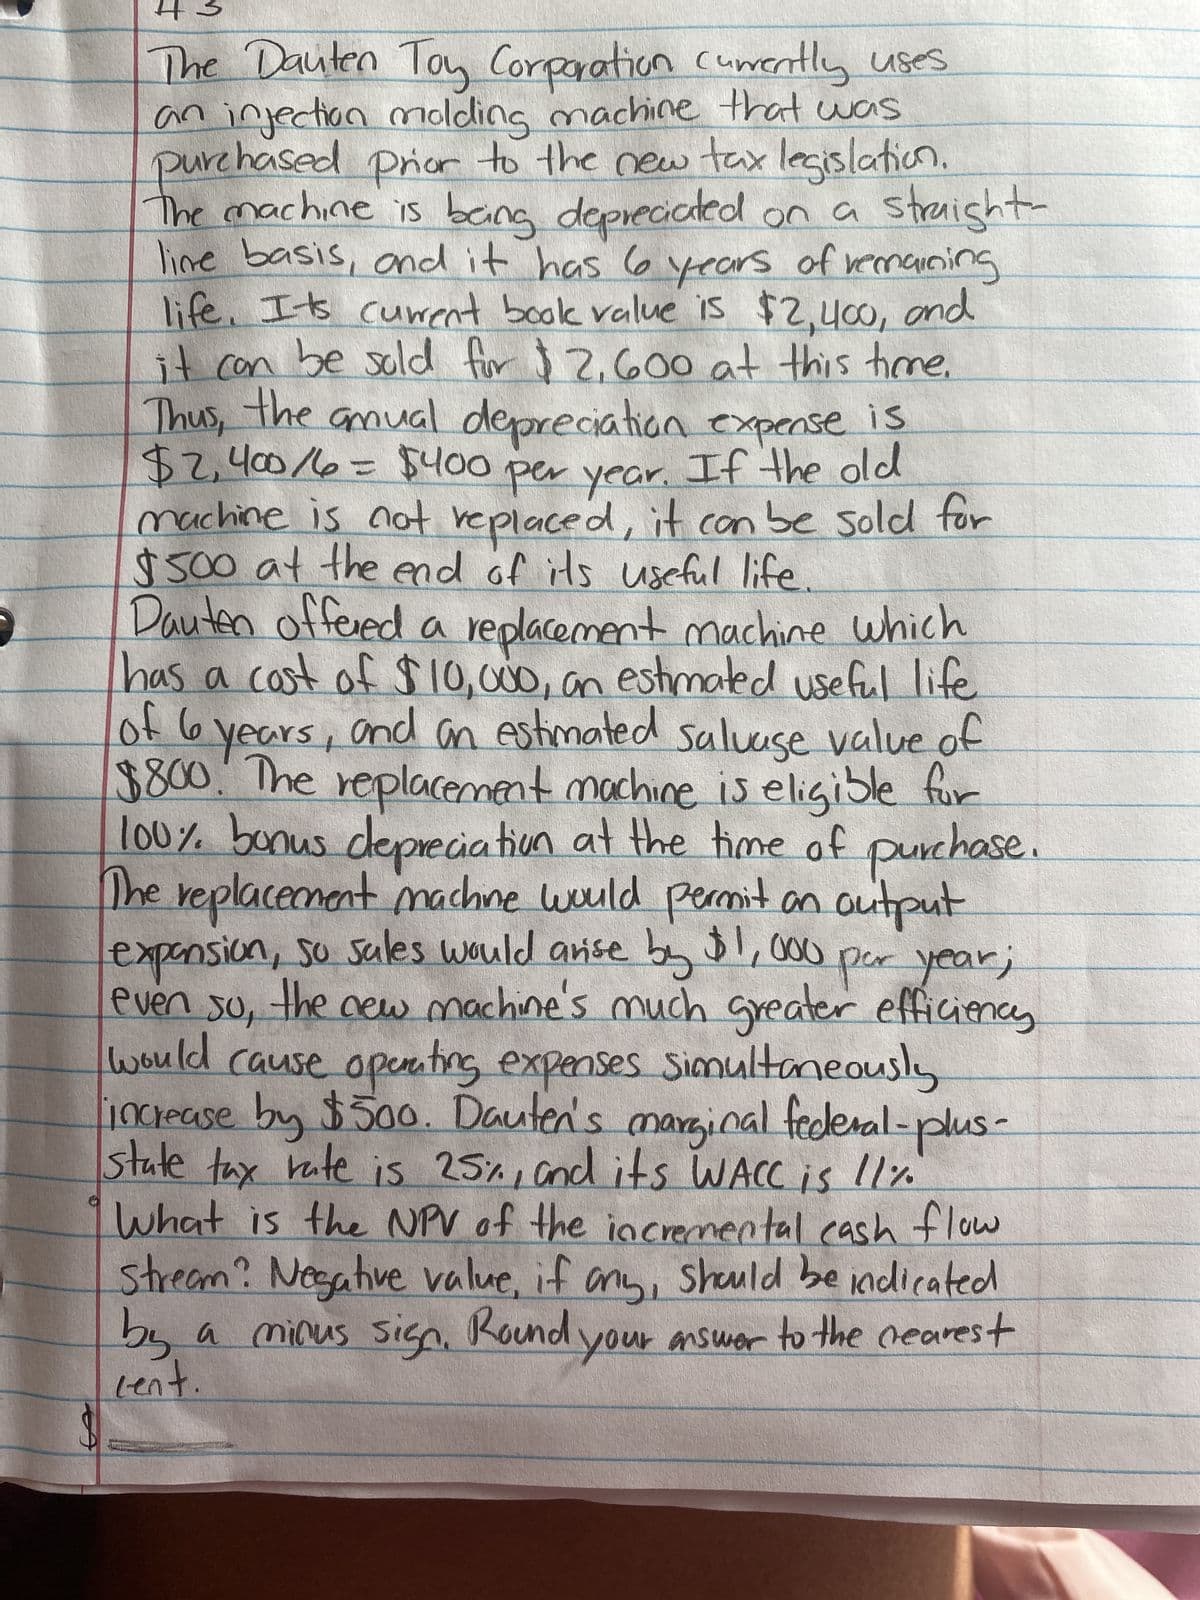 43
The Dauten Toy Corporation currently uses
an injection molding machine that was
purchased prior to the new tax legislation.
The machine is being depreciated on a straight-
line basis, and it has 6 years of remaining
life. Its current book value is $2,400, and
it can be sold for $2,600 at this time.
Thus, the annual depreciation expense is
$2,400/6 = $400 per year. If the old
machine is not replaced, it can be sold for
$500 at the end of its useful life.
Dauten offered a replacement machine which
has a cost of $10,000, an estimated useful life
of 6 years, and an estimated salvage value of
$800. The replacement machine is eligible for
100% bonus depreciation at the time of purchase.
The replacement machine would permit an output
expansion, so sales would arise by $1,000 per year;
even so, the new machine's much greater efficiency
would cause operating expenses simultaneously
increase by $500. Dauten's marginal federal-plus-
state tax rate is 25%, and its WACC is 11%
What is the NPV of the incremental cash flow
stream? Negative value, if any, should be indicated
by a minus sign. Round your answer to the nearest
cent.
$